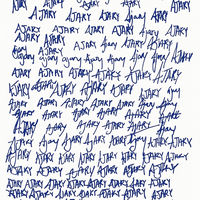 AJARY AJARY AJARY AJARY
AJARY AJARY Ajary AJARY
AJARY AJARY AJARY AJARY AJARY
Ajary AJARY AJARY AJARY Ajary AJARY
Ajary Ajary Ajary Ajary Ajary Ajary AJARY
AJARY AJARY AJARY AJARY AJARY AJARY
AJARY AJARY AJARY AJARY AJARY AJARY
AJARY AJARY AJARY AJARY Ajary Ajary
AJARY AJARY AJARY AJARY AJARY AJARY
AJARY Ajary AJARY AJARY AJARY AJARY
Ajary AJARY AJARY AJARY Ajary AJARY
AJARY AJARY AJARY AJARY AJARY AJARY AJARY
AJARY AJARY AJARY AJARY AJARY AJARY AJARY
AJARY AJARY AJARY AJARY AJARY AJARY AJARY
AJARY AJARY AJARY AJARY AJARY AJARY